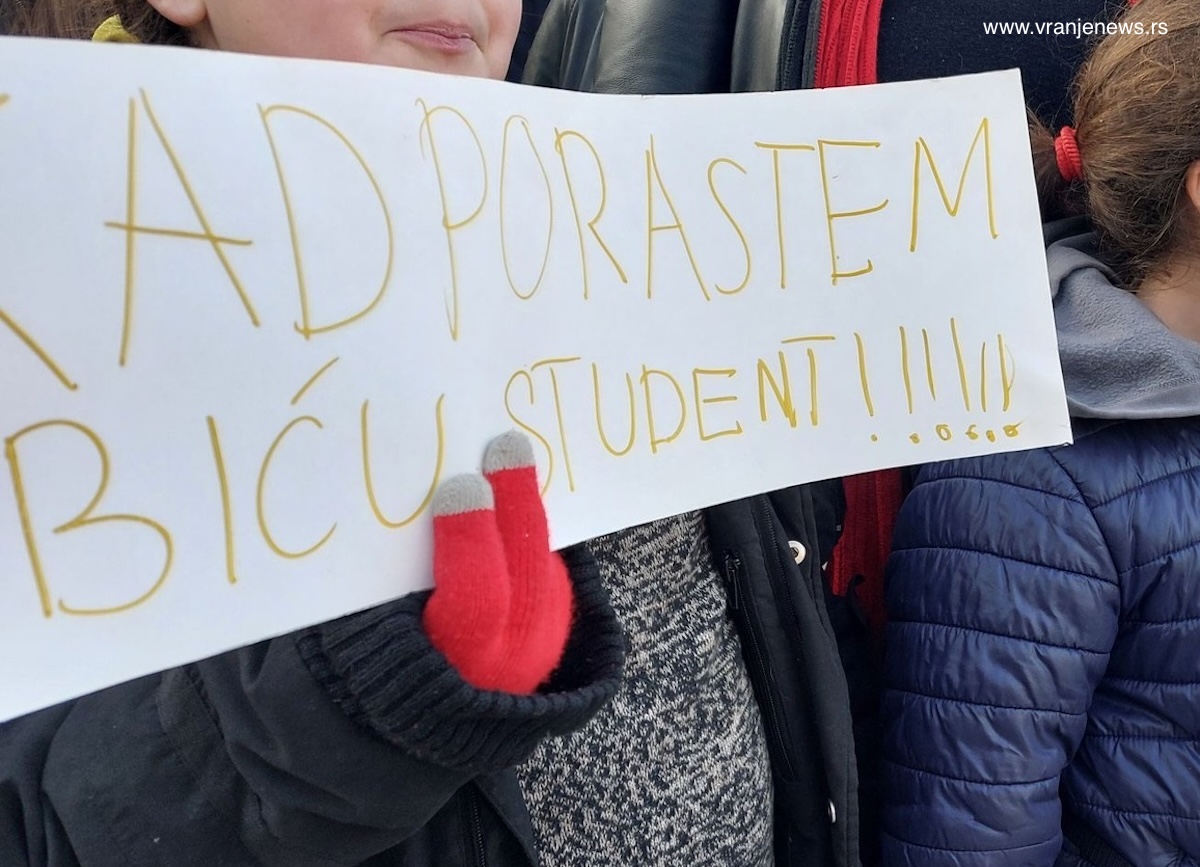 www.vranjenews.rs
KAD PORASTEM
BIĆU STUDENT!!!!!!